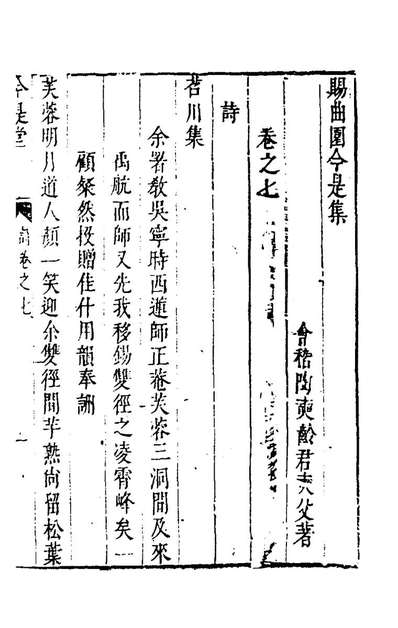 賜曲園今是集
會稽陶奭齡君奭父著
卷之七
詩
苕川集
余署敎吳寧時西蓮師正菴芙蓉三洞間及來
禹航而師又先我移錫雙徑之凌霄峰矣一
顧粲然投贈佳什用韻奉詶
芙蓉明月道人顏一笑迎余雙徑間芋熟尚留松葉
今是堂
詩卷之七
一